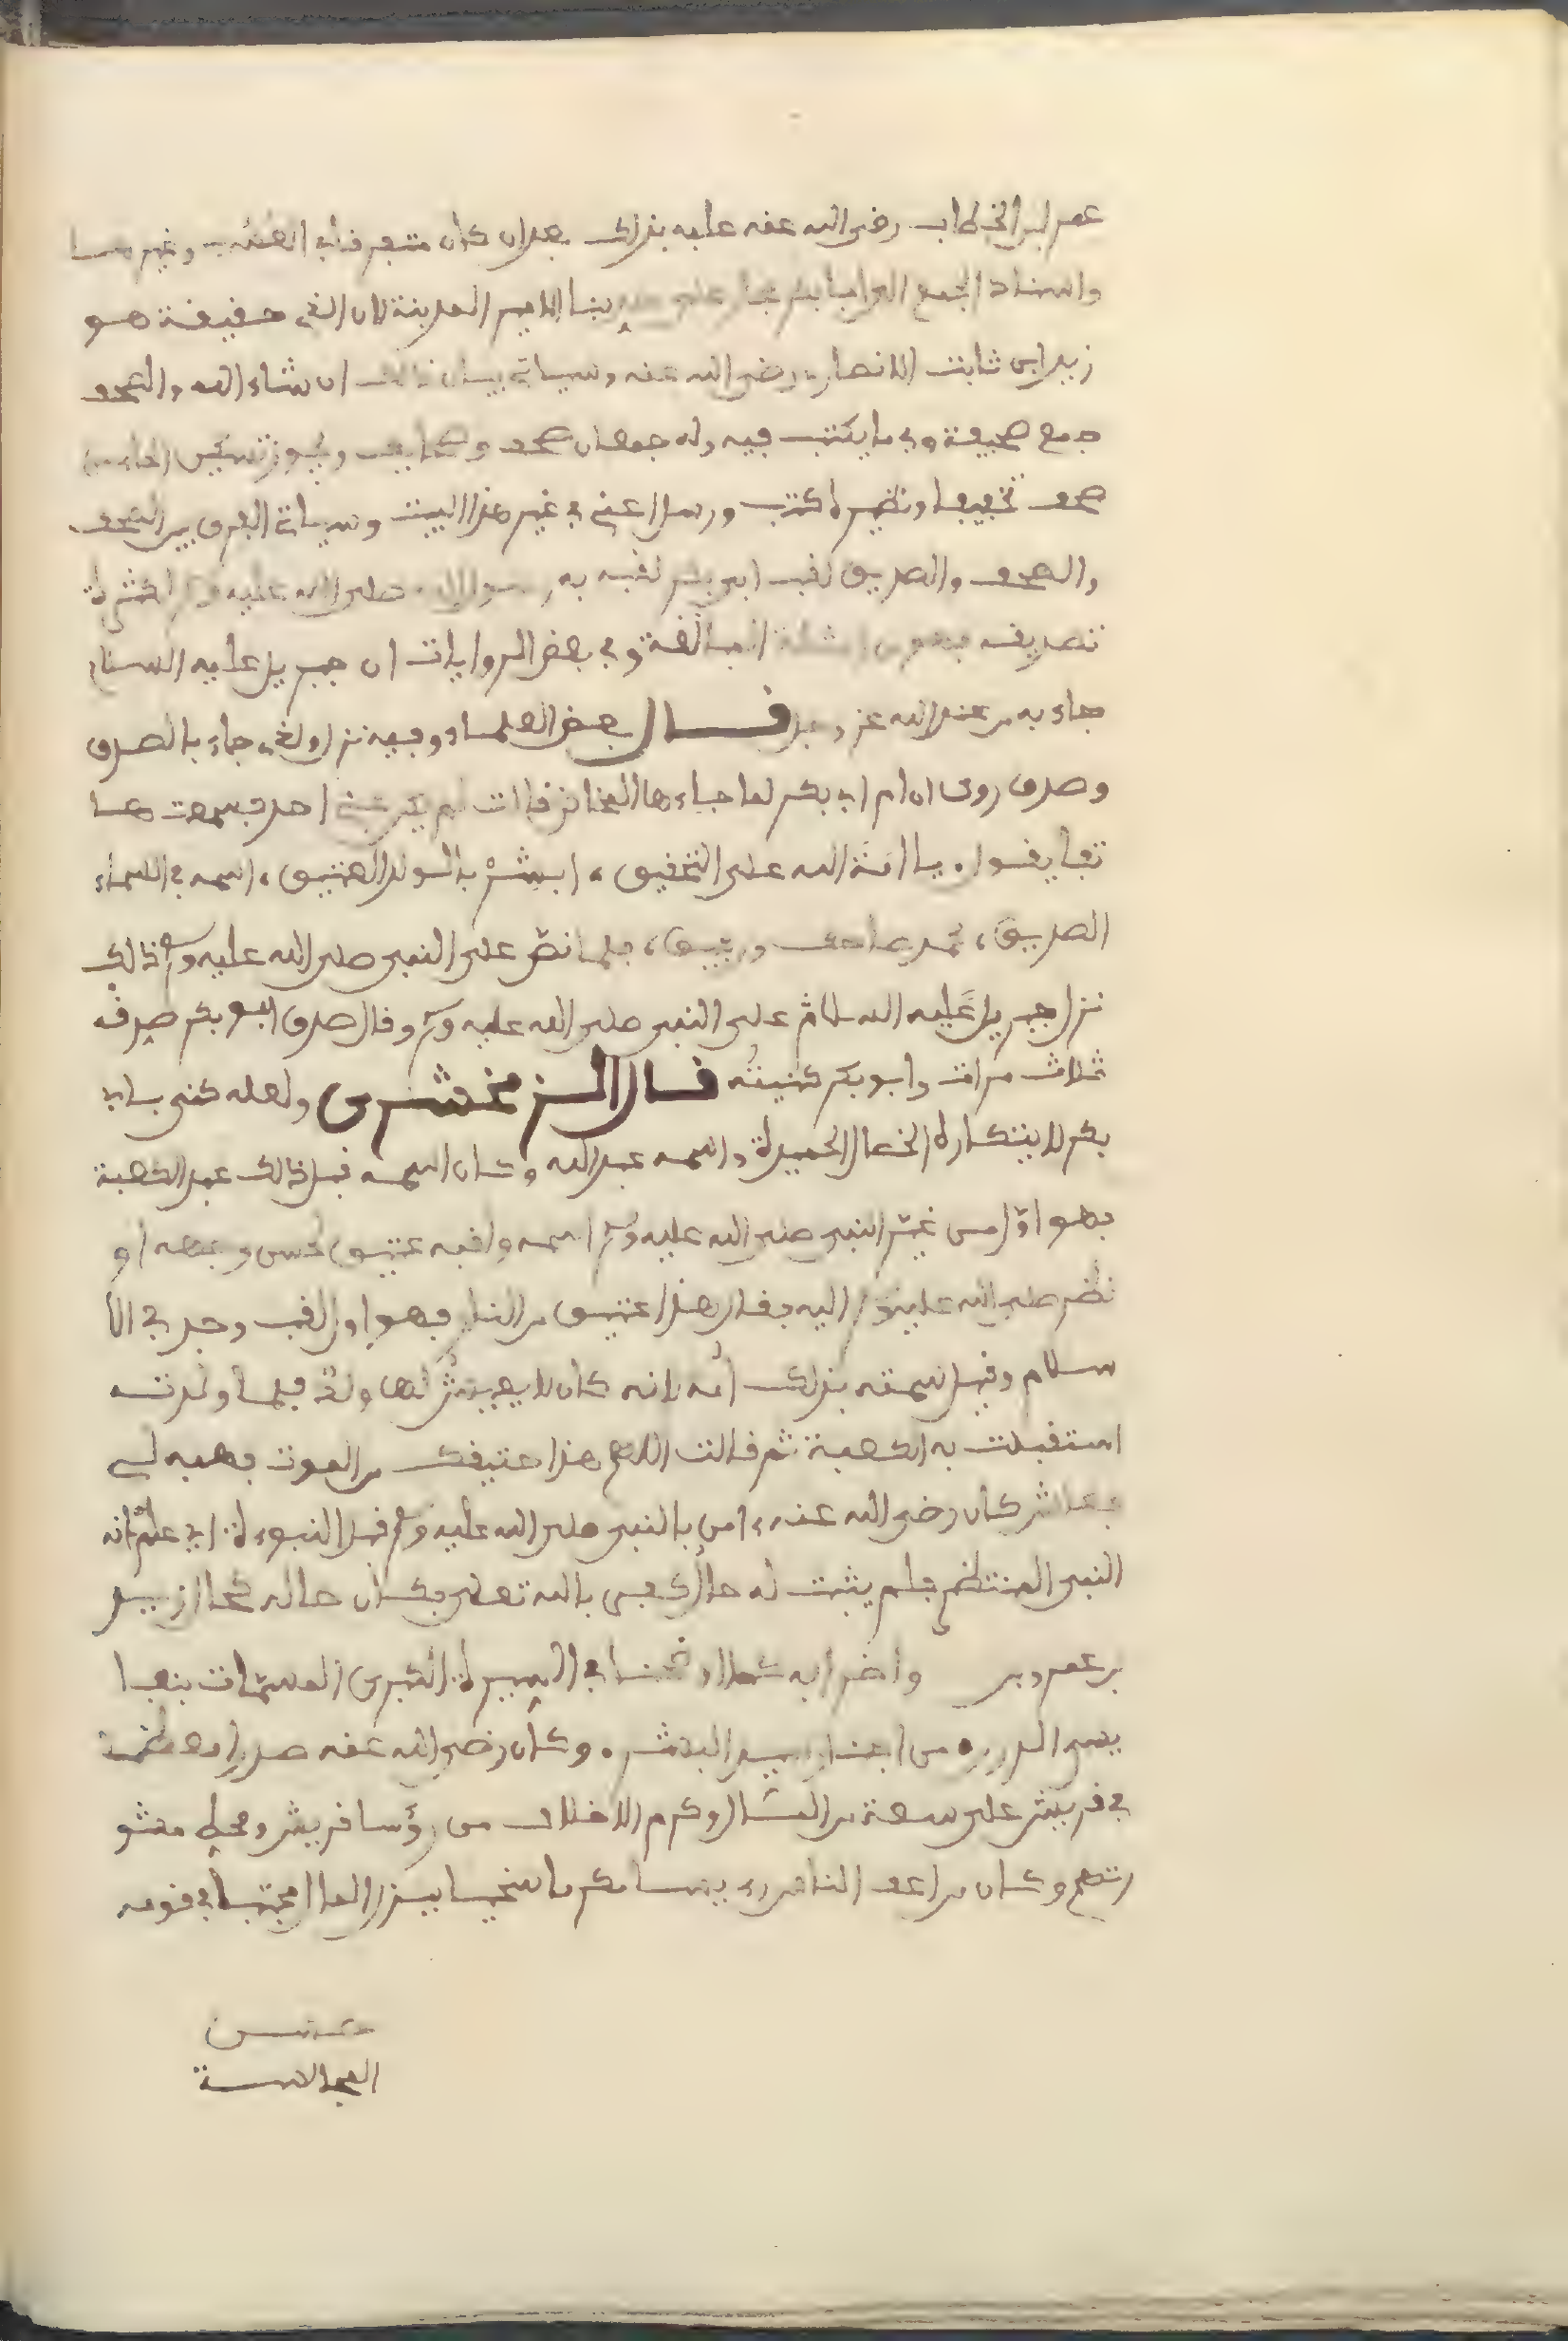 عمر ابن الخطاب رضي الله عنه عليه بذلك بعد ان كان متفرقا في العسب وغيرها
واسناد الجمع الى ابا بكر مجاز على حد بنا الامير المدينة لان الذي حقيقة هو
زيد ابن ثابت الانصاري رضي الله عنه وسياتي بيان ذالك ان شاء الله والصحف
جمع صحيفة وهي ما يكتب فيه وله جمعان صحف وصحايف ويجوز تسكين الحاء من
صحف تخفيفا ونظيره كتب ورسل اعني في غير هذا البيت وسياتي الفرق بين الصحف
والمصحف والصديق لقب ابي بكر لقبه به رسول الله صلى الله عليه وسلم لكثرة
تصديقه فهو من امثلة المبالغة وفي بعض الروايات ان جبريل عليه السلام
جاء به من عند الله عز وجل قال بعض العلماء وفيه نزل والذي جاء بالصدق
وصدق روي ان ام ابي بكر لما جاءها المخاض قالت لم يكن عندي احد فسمعت هـا
تفا يقول يا امة الله على التحقيق، ابشر بالولد العتيق، اسمه في السماء
الصديق، لمحمد صاحب ورفيق، فلما نص على النبي صلى الله عليه وسلم ذالك
نزل جبريل عليه السلام على النبي صلى الله عليه وسلم وقال صدق ابو بكر صدق
ثلاث مرات وابو بكر كنيته قال الزمخشري ولعله كني بابي
بكر لابتكاره الخصال الحميدة واسمه عبد الله وكان اسمه قبل ذالك عبد الكعبة
فهو اول من غير النبي صلى الله عليه وسلم اسمه ولقبه عتيق لحسن وجهه او
نظر صلى الله عليه وسلم اليه فقال هذا عتيق من النار فهو اول لقب وجد في الا
سلام وقيل سمته بذلك امه لانه كان لا يعيش لها ولد فلما ولدته
استقبلت به الكعبة ثم قالت اللهم هذا عتيقك من الموت فهبه لي
فعاش كان رضي الله عنه ءامن بالنبي صلى الله عليه وسلم قبل النبوءة اي علم انه
النبي المنتظر فلم يثبت له حال كفر بالله تعالى فكان حاله كحال زيد
بن عمرو بن واضرابه كما اوضحنا في السيرة الكبرى المسمات بنفا
يس الدرر من اخبار سيد البشر وكان رضي الله عنه صدرا معظما
في قريش على سعة من المال وكرم الاخلاق من رؤسا قريش ومحل مشو
رتهم وكان من اعف الناس رءيسا مكرما سخيا يبذل المال محببا في قومه
حسن
المجالسة